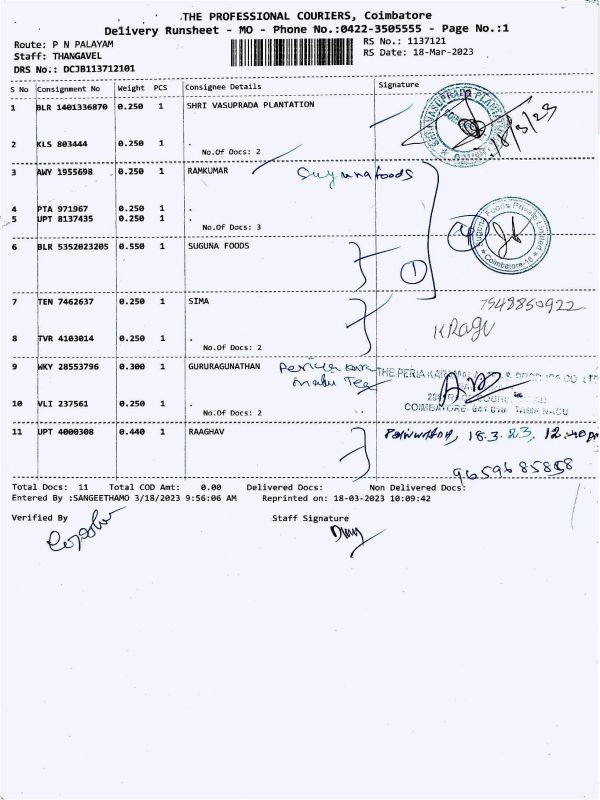 THE PROFESSIONAL COURIERS, Coimbatore
Delivery Runsheet - MO - Phone No.:0422-3505555 - Page No.:1
Route: P N PALAYAM RS No.: 1137121
Staff: THANGAVEL RS Date: 18-Mar-2023
DRS No.: DCJB113712101
S No Consignment No Weight PCS Consignee Details Signature
1 BLR 1401336870 0.250 1 SHRI VASUPRADA PLANTATION
18/3/23
2 KLS 803444 0.250 1 .
No.Of Docs: 2
3 AWY 1955698 0.250 1 RAMKUMAR Sugunafoods
4 PTA 971967 0.250 1 .
5 UPT 8137435 0.250 1 .
No.Of Docs: 3
Suguna Foods Private Limited
* Coimbatore-18 *
6 BLR 5352023205 0.550 1 SUGUNA FOODS
1
7 TEN 7462637 0.250 1 SIMA 7548850922
K Ragu
8 TVR 4103014 0.250 1 .
No.Of Docs: 2
9 WKY 28553796 0.300 1 GURURAGUNATHAN
THE PERIA
10 VLI 237561 0.250 1 .
COIMBATORE
No.Of Docs: 2
11 UPT 4000308 0.440 1 RAAGHAV 18.3.23, 12.40
9659685858
Total Docs: 11 Total COD Amt: 0.00 Delivered Docs: Non Delivered Docs:
Entered By :SANGEETHAMO 3/18/2023 9:56:06 AM Reprinted on: 18-03-2023 10:09:42
Verified By Staff Signature